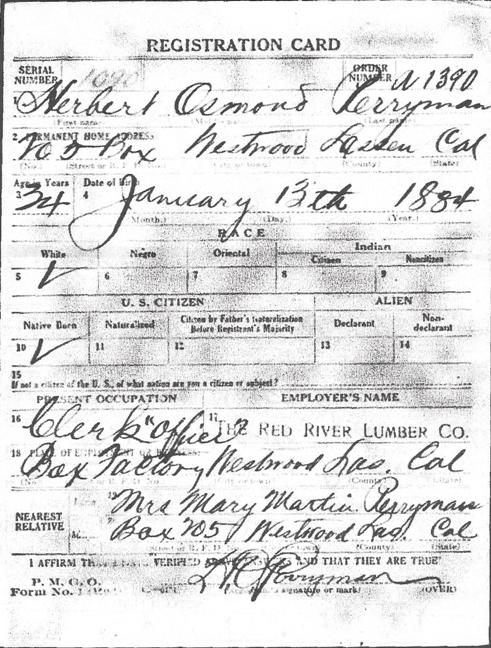 REGISTRATION CARD
SERIAL NUMBER 1090 ORDER NUMBER A 1390
1 Herbert Osmond Perryman
(First name) (Last name)
2 PERMANENT HOME ADDRESS:
705 Box Westwood Lassen Cal
(No.) (Street or R. F. D. (City or town) (County) (State)
Age in Years Date of Birth
3 34 4 January 13th 1884
(Month.) (Day.) (Year.)
RACE
White Negro Oriental Indian
Citizen Noncitizen
5 ✓ 6 7 8 9
U. S. CITIZEN ALIEN
Native Born Naturalized Citizen by Father's Naturalization Before Registrant's Majority Declarant Non-declarant
10 ✓ 11 12 13 14
15
If not a citizen of the U. S., of what nation are you a citizen or subject?
PRESENT OCCUPATION EMPLOYER'S NAME
16 Clerk "office" 17 THE RED RIVER LUMBER CO.
18 PLACE OF EMPLOYMENT
Box Factory Westwood Las. Cal
(No. (County) (State)
NEAREST RELATIVE
19 Mrs Mary Martin Perryman
Box 705 Westwood Las. Cal
(Street or R. F. D. (County) (State)
I AFFIRM THAT I HAVE VERIFIED ABOVE ANSWERS AND THAT THEY ARE TRUE
P. M. G. O.
Form No. 1 Perryman
signature or mark) (OVER)